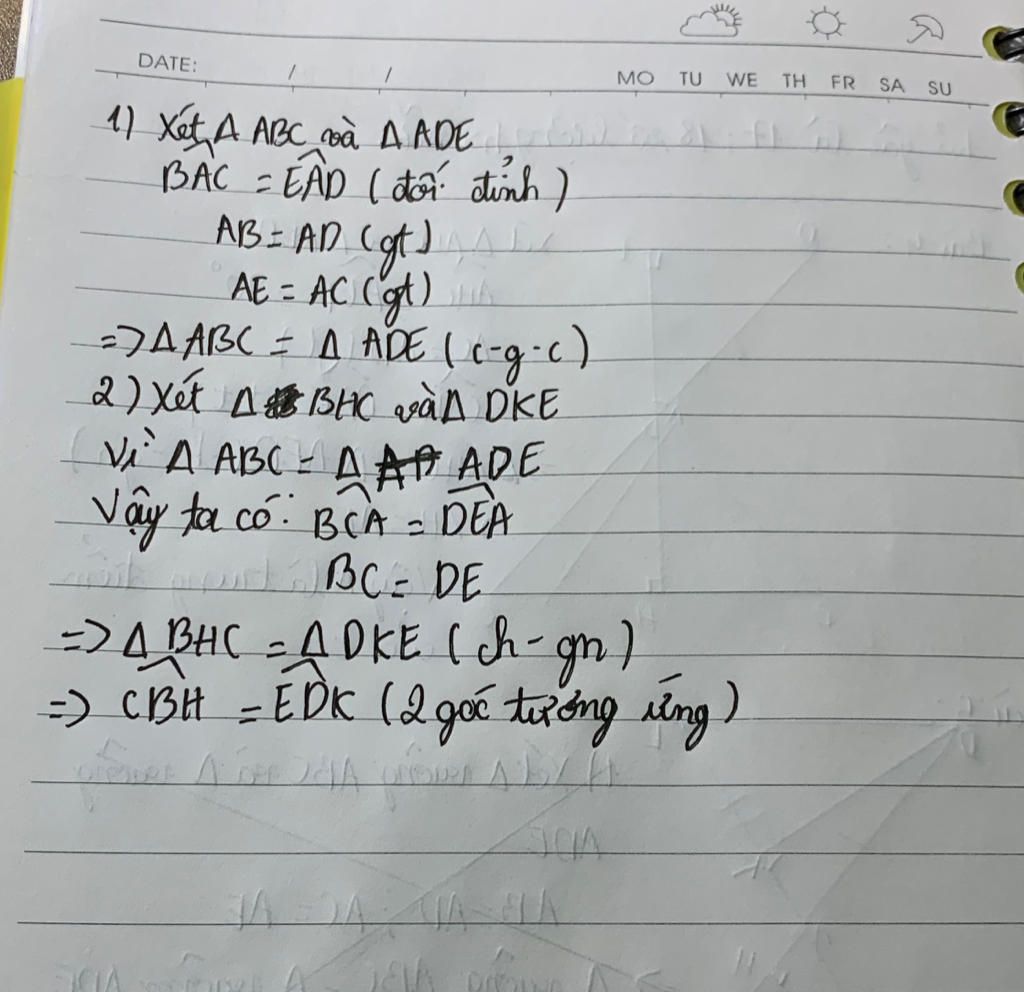 DATE: / /
MO TU WE TH FR SA SU
1) Xét Δ ABC và Δ ADE
B̂AC = ÊAD (đối đỉnh)
AB = AD (gt)
AE = AC (gt)
=> Δ ABC = Δ ADE (c-g-c)
2) Xét Δ BHC và Δ DKE
Vì Δ ABC = Δ ADE
Vậy ta có: B̂CA = D̂EA
BC = DE
=> Δ BHC = Δ DKE (ch-gn)
=> ĈBH = ÊDK (2 góc tương ứng)